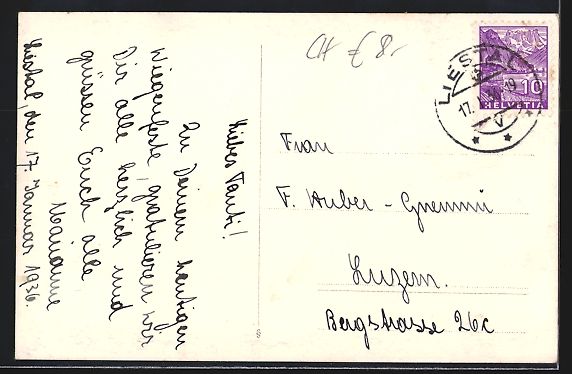 Liebes Tanti!
Zu Deinem heutigen
Wiegenfeste, gratulieren wir
Dir alle herzlich und
grüssen Euch alle
Marianne
Liestal, den 17. Januar 1936.
CH € 8.-
LIESTAL
17.
V
10
HELVETIA
Frau
F. Huber-Gremmi
Luzern.
Bergstrasse 26c